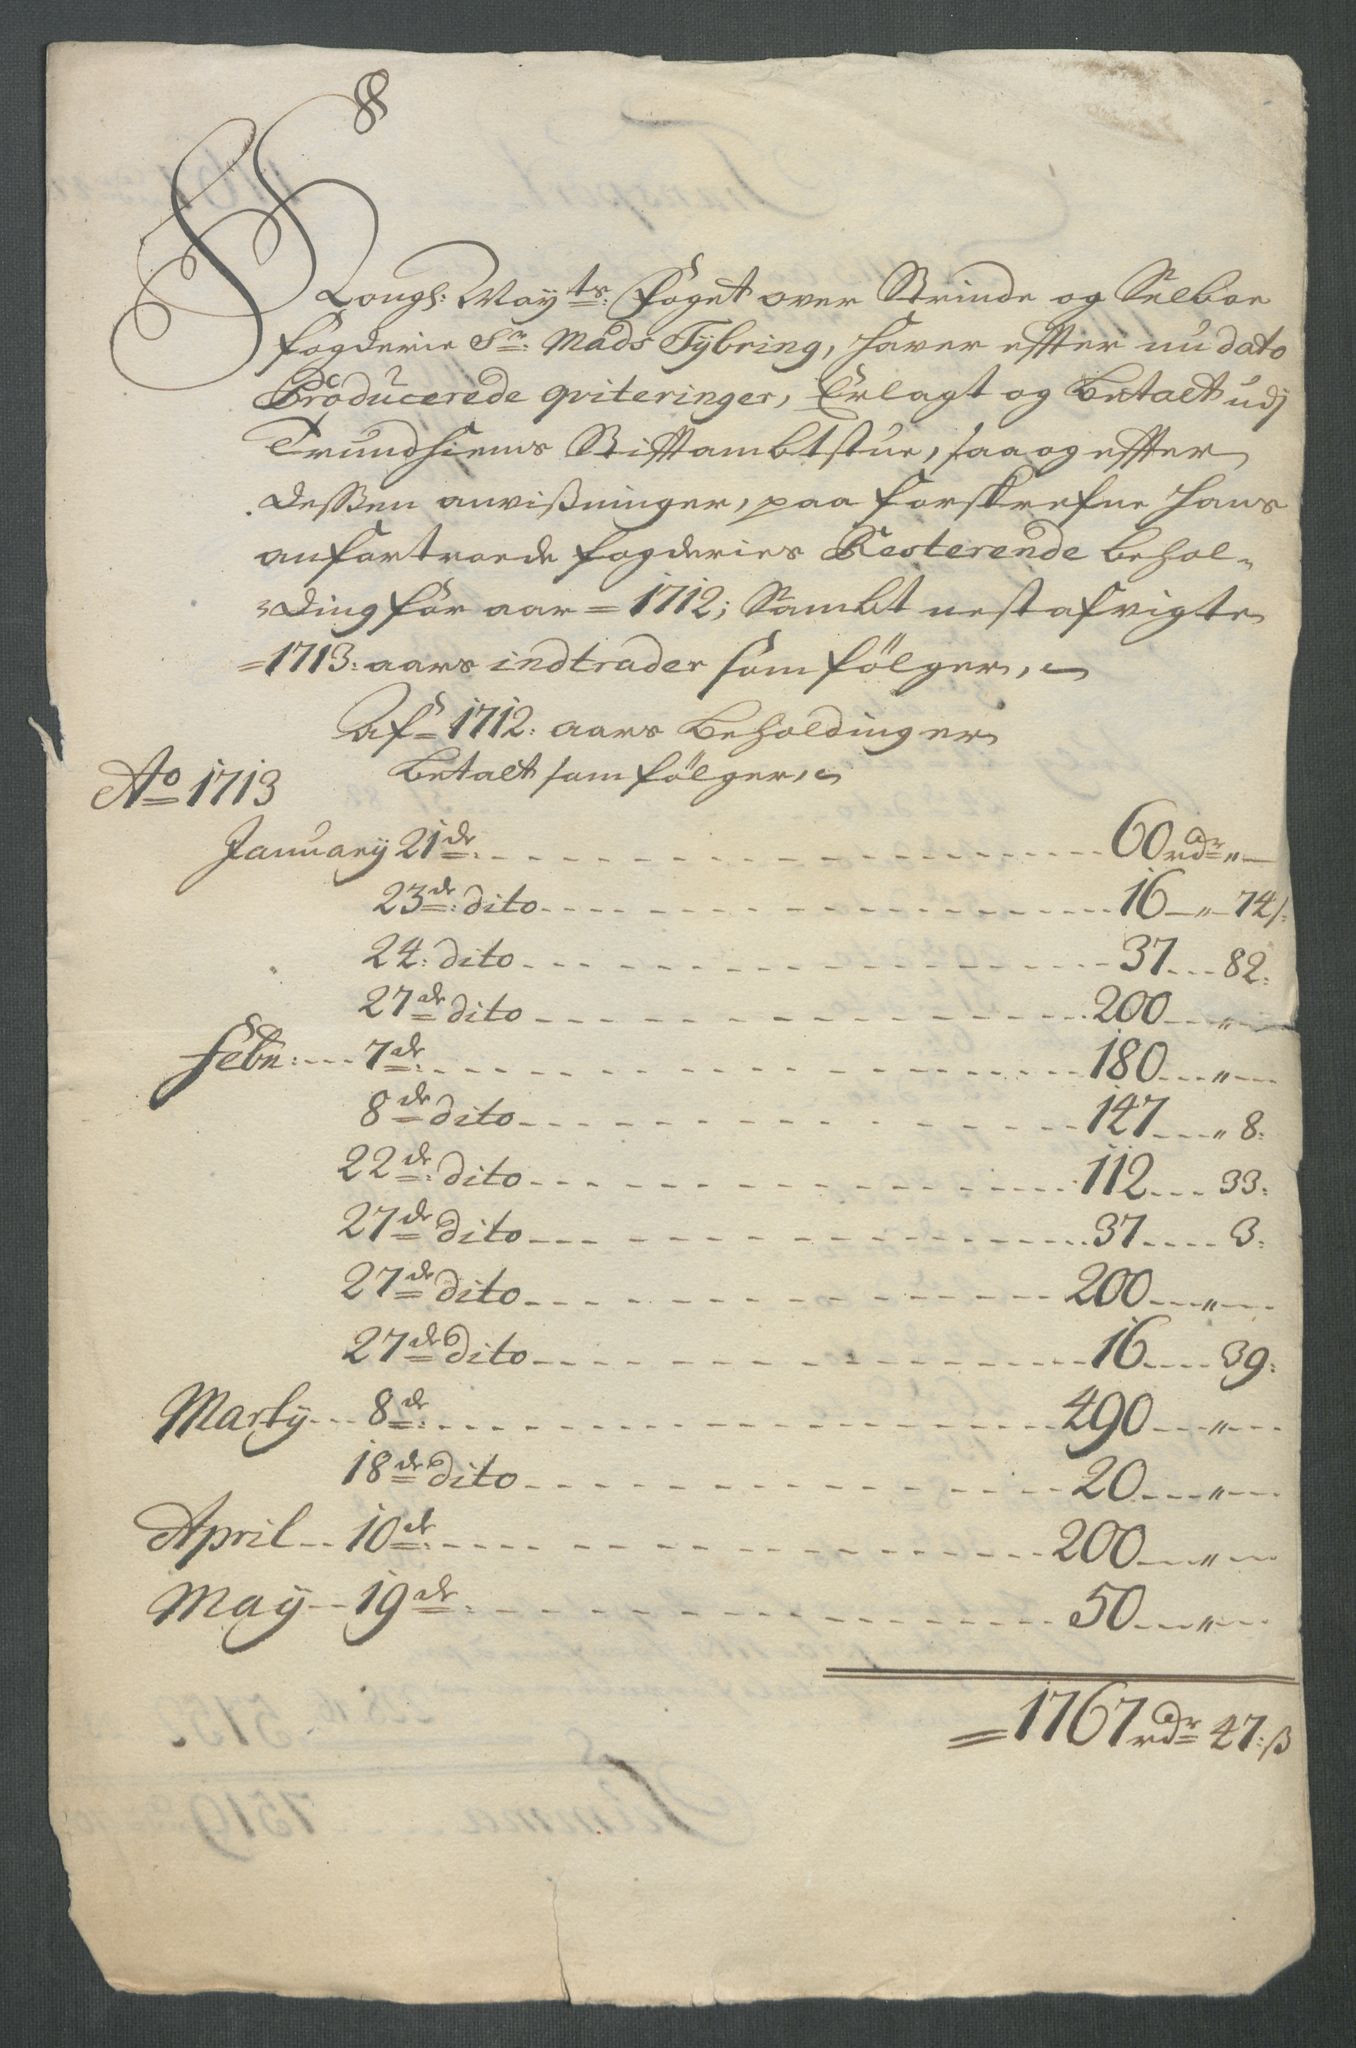 Kongl: May.ts: Foget over Strinde og Selboe
fogderie Sr: Mads Tybring, haver effter nu dato
Producerede qviteringer, Erlagt og betalt udj
Trundhiems Stifftambtstue, saa og effter
dessen anvißninger, paa forskrefne hans
anfortroede fogderies Resterende behol-
ding for aar = 1712; Sambt nest afvigte
=1713: aars indtrader som følger,
Af 1712: aars beholdinger
betalt som følger,
Ao 1713
January 21de: 60 rdr " —
23de: dito 16 — " — 74 s:
24: dito 37 82:
27de dito 200 "
Febr: 7de: 180 "
8de dito 147 " 8:
22de: dito 112 33:
27de dito 37 3:
27de dito 200 "
27de dito 16 39:
Marty 8de: 490 "
18de dito 20 "
April 10de: 200 "
May 19de: 50 "
= 1767 rdr 47: ß